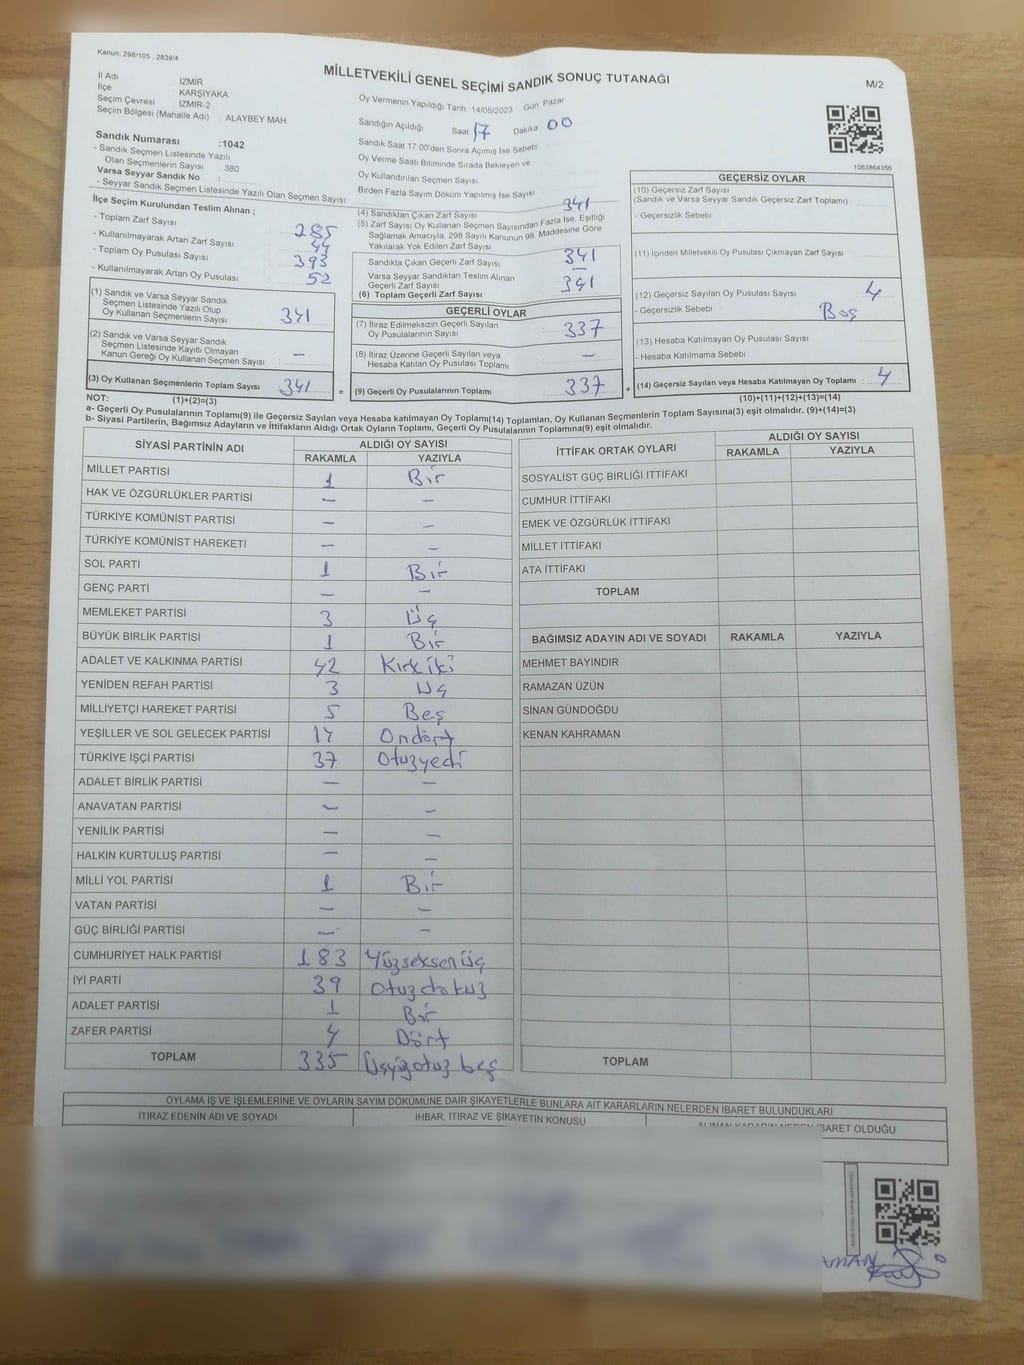 Kanun: 298/105 , 2839/4
MİLLETVEKİLİ GENEL SEÇİMİ SANDIK SONUÇ TUTANAĞI
M/2
İl Adı : İZMİR
İlçe : KARŞIYAKA
Seçim Çevresi : İZMİR-2
Seçim Bölgesi (Mahalle Adı) : ALAYBEY MAH.
Sandık Numarası :1042
- Sandık Seçmen Listesinde Yazılı
Olan Seçmenlerin Sayısı : 380
Varsa Seyyar Sandık No :
- Seyyar Sandık Seçmen Listesinde Yazılı Olan Seçmen Sayısı
Oy Vermenin Yapıldığı Tarih 14/05/2023 Gün Pazar
Sandığın Açıldığı Saat 17 Dakika 00
Sandık Saat 17:00'den Sonra Açımış İse Sebebi
Oy Verme Saati Bitiminde Sırada Bekleyen ve
Oy Kullandırılan Seçmen Sayısı
Birden Fazla Sayım Döküm Yapılmış İse Sayısı
1083864356
İlçe Seçim Kurulundan Teslim Alınan ;
- Toplam Zarf Sayısı 285
- Kullanılmayarak Artan Zarf Sayısı 44
- Toplam Oy Pusulası Sayısı 393
- Kullanılmayarak Artan Oy Pusulası 52
(1) Sandık ve Varsa Seyyar Sandık
Seçmen Listesinde Yazılı Olup
Oy Kullanan Seçmenlerin Sayısı 341
(2) Sandık ve Varsa Seyyar Sandık
Seçmen Listesinde Kayıtlı Olmayan
Kanun Gereği Oy Kullanan Seçmen Sayısı : —
(3) Oy Kullanan Seçmenlerin Toplam Sayısı 341
(4) Sandıktan Çıkan Zarf Sayısı 341
(5) Zarf Sayısı Oy Kullanan Seçmen Sayısından Fazla İse, Eşitliği
Sağlamak Amacıyla; 298 Sayılı Kanunun 98. Maddesine Göre
Yakılarak Yok Edilen Zarf Sayısı
Sandıkta Çıkan Geçerli Zarf Sayısı 341
Varsa Seyyar Sandıktan Teslim Alınan
Geçerli Zarf Sayısı —
(6) Toplam Geçerli Zarf Sayısı 341
GEÇERLİ OYLAR
(7) İtiraz Edilmeksizin Geçerli Sayılan
Oy Pusulalarının Sayısı 337
(8) İtiraz Üzerine Geçerli Sayılan veya
Hesaba Katılan Oy Pusulası Toplamı —
= (9) Geçerli Oy Pusulalarının Toplamı 337
GEÇERSİZ OYLAR
(10) Geçersiz Zarf Sayısı
(Sandık ve Varsa Seyyar Sandık Geçersiz Zarf Toplamı)
- Geçersizlik Sebebi
(11) İçinden Milletvekili Oy Pusulası Çıkmayan Zarf Sayısı
(12) Geçersiz Sayılan Oy Pusulası Sayısı 4
- Geçersizlik Sebebi : Boş
(13) Hesaba Katılmayan Oy Pusulası Sayısı
- Hesaba Katılmama Sebebi
+ (14) Geçersiz Sayılan veya Hesaba Katılmayan Oy Toplamı : 4
NOT: (1)+(2)=(3) (10)+(11)+(12)+(13)=(14)
a- Geçerli Oy Pusulalarının Toplamı(9) ile Geçersiz Sayılan veya Hesaba katılmayan Oy Toplamı(14) Toplamları, Oy Kullanan Seçmenlerin Toplam Sayısına(3) eşit olmalıdır. (9)+(14)=(3)
b- Siyasi Partilerin, Bağımsız Adayların ve İttifakların Aldığı Ortak Oyların Toplamı, Geçerli Oy Pusulalarının Toplamına(9) eşit olmalıdır.
SİYASİ PARTİNİN ADI ALDIĞI OY SAYISI
RAKAMLA YAZIYLA
MİLLET PARTİSİ 1 Bir
HAK VE ÖZGÜRLÜKLER PARTİSİ — —
TÜRKİYE KOMÜNİST PARTİSİ — —
TÜRKİYE KOMÜNİST HAREKETİ — —
SOL PARTİ 1 Bir
GENÇ PARTİ — —
MEMLEKET PARTİSİ 3 Üç
BÜYÜK BİRLİK PARTİSİ 1 Bir
ADALET VE KALKINMA PARTİSİ 42 Kırkiki
YENİDEN REFAH PARTİSİ 3 Üç
MİLLİYETÇİ HAREKET PARTİSİ 5 Beş
YEŞİLLER VE SOL GELECEK PARTİSİ 14 Ondört
TÜRKİYE İŞÇİ PARTİSİ 37 Otuzyedi
ADALET BİRLİK PARTİSİ — —
ANAVATAN PARTİSİ — —
YENİLİK PARTİSİ — —
HALKIN KURTULUŞ PARTİSİ — —
MİLLİ YOL PARTİSİ 1 Bir
VATAN PARTİSİ — —
GÜÇ BİRLİĞİ PARTİSİ — —
CUMHURİYET HALK PARTİSİ 183 Yüzseksenüç
İYİ PARTİ 39 Otuzdokuz
ADALET PARTİSİ 1 Bir
ZAFER PARTİSİ 4 Dört
TOPLAM 335 Üçyüzotuz beş
İTTİFAK ORTAK OYLARI ALDIĞI OY SAYISI
RAKAMLA YAZIYLA
SOSYALİST GÜÇ BİRLİĞİ İTTİFAKI
CUMHUR İTTİFAKI
EMEK VE ÖZGÜRLÜK İTTİFAKI
MİLLET İTTİFAKI
ATA İTTİFAKI
TOPLAM
BAĞIMSIZ ADAYIN ADI VE SOYADI RAKAMLA YAZIYLA
MEHMET BAYINDIR
RAMAZAN ÜZÜN
SİNAN GÜNDOĞDU
KENAN KAHRAMAN
TOPLAM
OYLAMA İŞ VE İŞLEMLERİNE VE OYLARIN SAYIM DÖKÜMÜNE DAİR ŞİKAYETLERLE BUNLARA AİT KARARLARIN NELERDEN İBARET BULUNDUKLARI
İTİRAZ EDENİN ADI VE SOYADI İHBAR, İTİRAZ VE ŞİKAYETİN KONUSU ALINAN KARARIN NEDEN İBARET OLDUĞU
AMAN